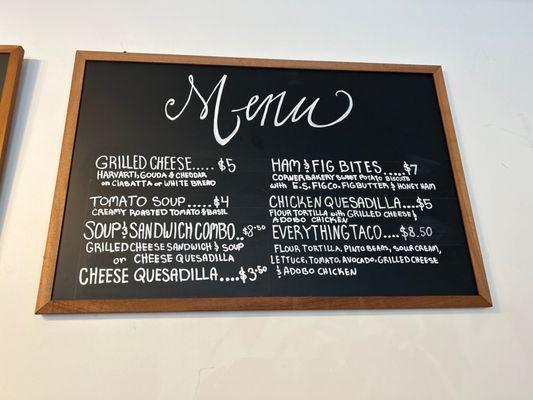 Menu
GRILLED CHEESE.....$5
HARVARTI, GOUDA & CHEDDAR
on CIABATTA or WHITE BREAD
TOMATO SOUP.....$4
CREAMY ROASTED TOMATO & BASIL
SOUP & SANDWICH COMBO..$8.50
GRILLED CHEESE SANDWICH & SOUP
or CHEESE QUESADILLA
CHEESE QUESADILLA....$3.50
HAM & FIG BITES.....$7
CORNER BAKERY SWEET POTATO BISCUITS
with E.S. FIG CO. FIG BUTTER & HONEY HAM
CHICKEN QUESADILLA....$5
FLOUR TORTILLA with GRILLED CHEESE &
ADOBO CHICKEN
EVERYTHING TACO....$8.50
FLOUR TORTILLA, PINTO BEANS, SOUR CREAM,
LETTUCE, TOMATO, AVOCADO, GRILLED CHEESE
& ADOBO CHICKEN